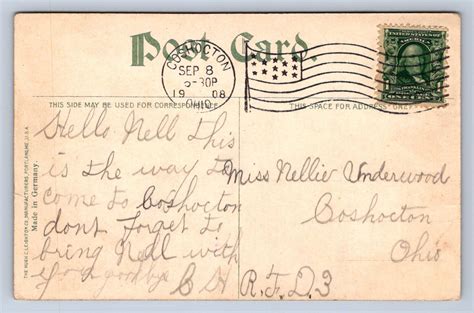 Post Card.
COSHOCTON
SEP 8
30P
1908
OHIO
THIS SIDE MAY BE USED FOR CORRESPONDENCE
THIS SPACE FOR ADDRESS ONLY
ONE CENT
THE HUGH C. LEIGHTON CO., MANUFACTURERS, PORTLAND, ME. U.S.A.
Made in Germany.
Hello Nell This
is the way to
come to Coshocton
dont forget to
bring Nell with
you goodbye
C H
Miss Nellie Underwood
Coshocton
Ohio
R.F.D.3